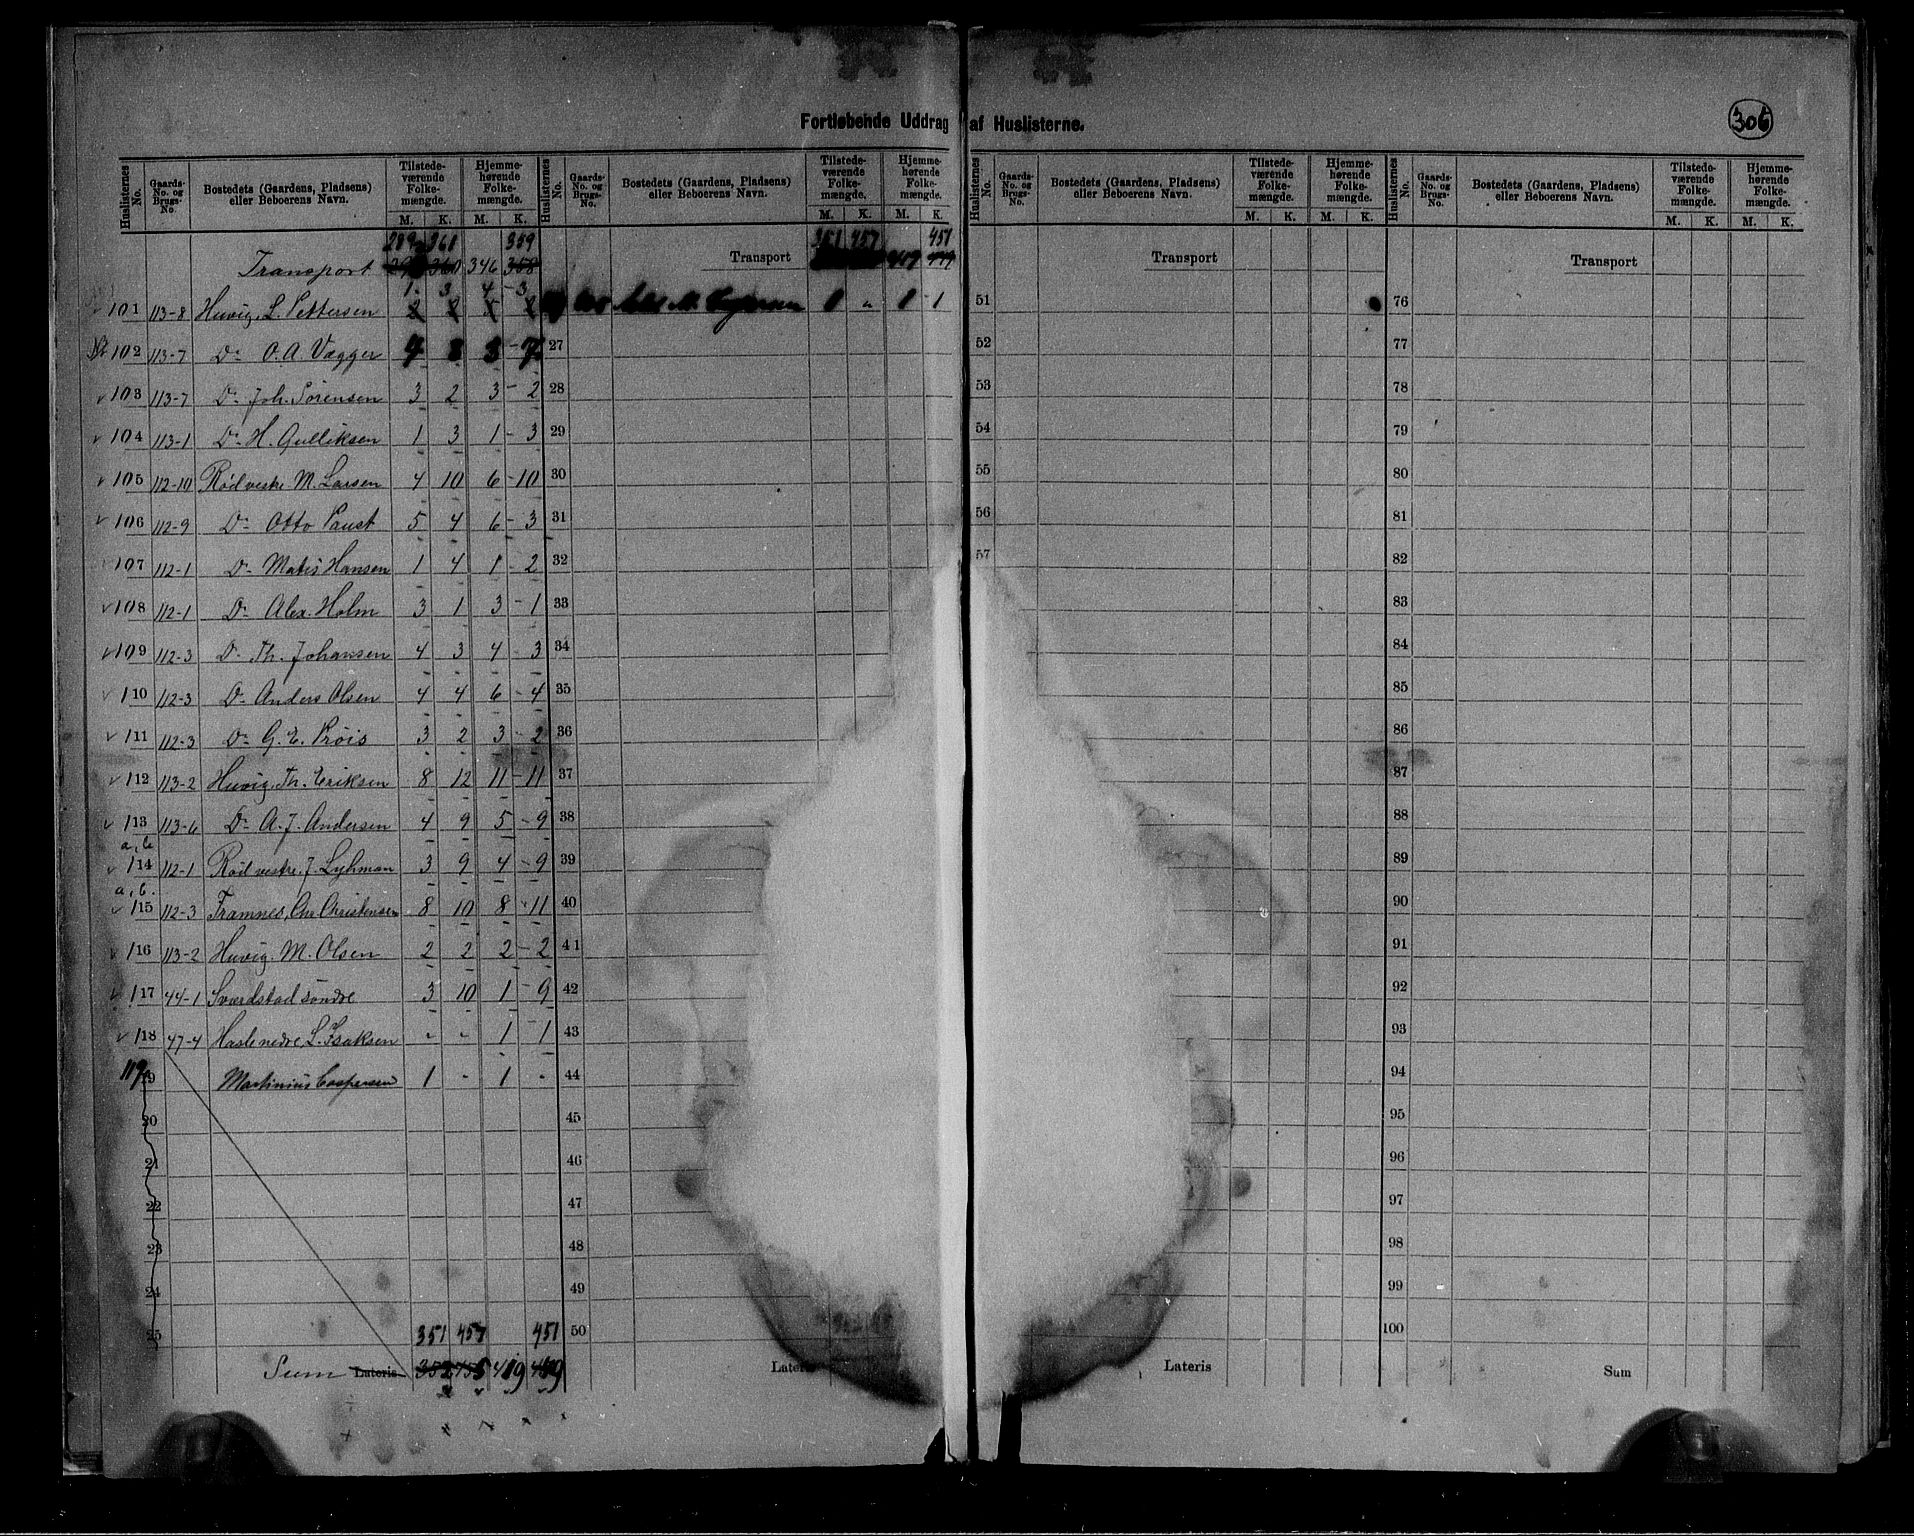 Fortløbende Uddrag af Huslisterne.
306
Huslisternes No. Gaards-No. og Brugs-No. Bostedets (Gaardens, Pladsens) eller Beboerens Navn. Tilstedeværende Folkemængde. M. K. Hjemmehørende Folkemængde. M. K.
289 361 359
Transport 346 358
1 3 4 - 3
101 113-8 Huvig, L. Pettersen 2 2 5 2
102 113-7 Do O. A. Vægger 4 8 3 - 7
103 113-7 Do Joh. Sørensen 3 2 3 - 2
104 113-1 Do H. Gulliksen 1 3 1 - 3
105 112-10 Rød vestre M. Larsen 4 10 6 - 10
106 112-9 Do Otto Paust 5 4 6 - 3
107 112-1 Do Matis Hansen 1 4 1 - 2
108 112-1 Do Alex. Holm 3 1 3 - 1
109 112-3 Do Th. Johansen 4 3 4 - 3
110 112-3 Do Anders Olsen 4 4 6 - 4
111 112-3 Do G. E. Prøis 3 2 3 - 2
112 113-2 Huvig, Th. Eriksen 8 12 11 - 11
113 113-6 Do A. J. Andersen 4 9 5 - 9
a, b
114 112-1 Rød vestre J. Lyhman 3 9 4 - 9
a, b.
115 112-3 Framnes, Chr. Christensen 8 10 8 - 11
116 113-2 Huvig. M. Olsen 2 2 2 - 2
117 44-1 Sværdstad søndre 3 10 1 - 9
118 47-4 Hasle nedre, L. Isaksen - - 1 - 1
119 19 Martinius Caspersen 1 - 1 -
20
21
22
23
24
25 351 457 451
Sum Lateris 352 419
Huslisternes No. Gaards-No. og Brugs-No. Bostedets (Gaardens, Pladsens) eller Beboerens Navn. Tilstedeværende Folkemængde. M. K. Hjemmehørende Folkemængde. M. K.
351 457 451
Transport
1 " 1 - 1
27
28
29
30
31
32
33
34
35
36
37
38
39
40
41
42
43
44
45
46
47
48
49
50
Lateris
Huslisternes No. Gaards-No. og Brugs-No. Bostedets (Gaardens, Pladsens) eller Beboerens Navn. Tilstedeværende Folkemængde. M. K. Hjemmehørende Folkemængde. M. K.
Transport
51
52
53
54
55
56
57
Lateris
Huslisternes No. Gaards-No. og Brugs-No. Bostedets (Gaardens, Pladsens) eller Beboerens Navn. Tilstedeværende Folkemængde. M. K. Hjemmehørende Folkemængde. M. K.
Transport
76
77
78
79
80
81
82
83
84
85
86
87
88
89
90
91
92
93
94
95
96
97
98
99
100
Sum